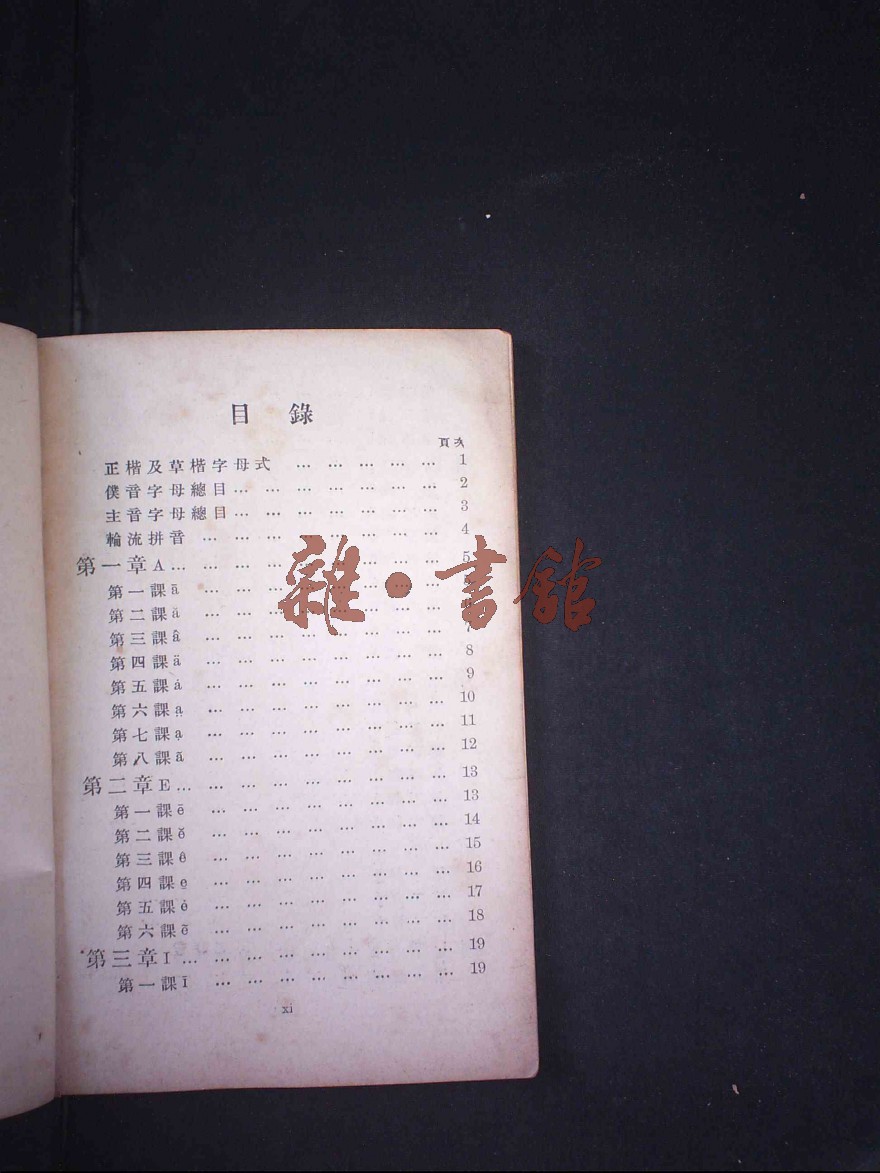 目錄
頁次
正楷及草楷字母式 … … … … … 1
僕音字母總目 … … … … … … … 2
主音字母總目 … … … … … … … 3
輪流拼音 … … … … … … … … 4
第一章 A … … … … … … … … … 5
第一課 ā … … … … … … … … 5
第二課 ă … … … … … … … … 6
第三課 â … … … … … … … … 7
第四課 ä … … … … … … … … 8
第五課 ȧ … … … … … … … … 9
第六課 … … … … … … … … 10
第七課 ạ … … … … … … … … 11
第八課 ã … … … … … … … … 12
第二章 E … … … … … … … … … 13
第一課 ē … … … … … … … … 13
第二課 ĕ … … … … … … … … 14
第三課 ê … … … … … … … … 15
第四課 e̱ … … … … … … … … 16
第五課 ė … … … … … … … … 17
第六課 ẽ … … … … … … … … 18
第三章 I … … … … … … … … … 19
第一課 ī … … … … … … … … 19
xi
雜·書館